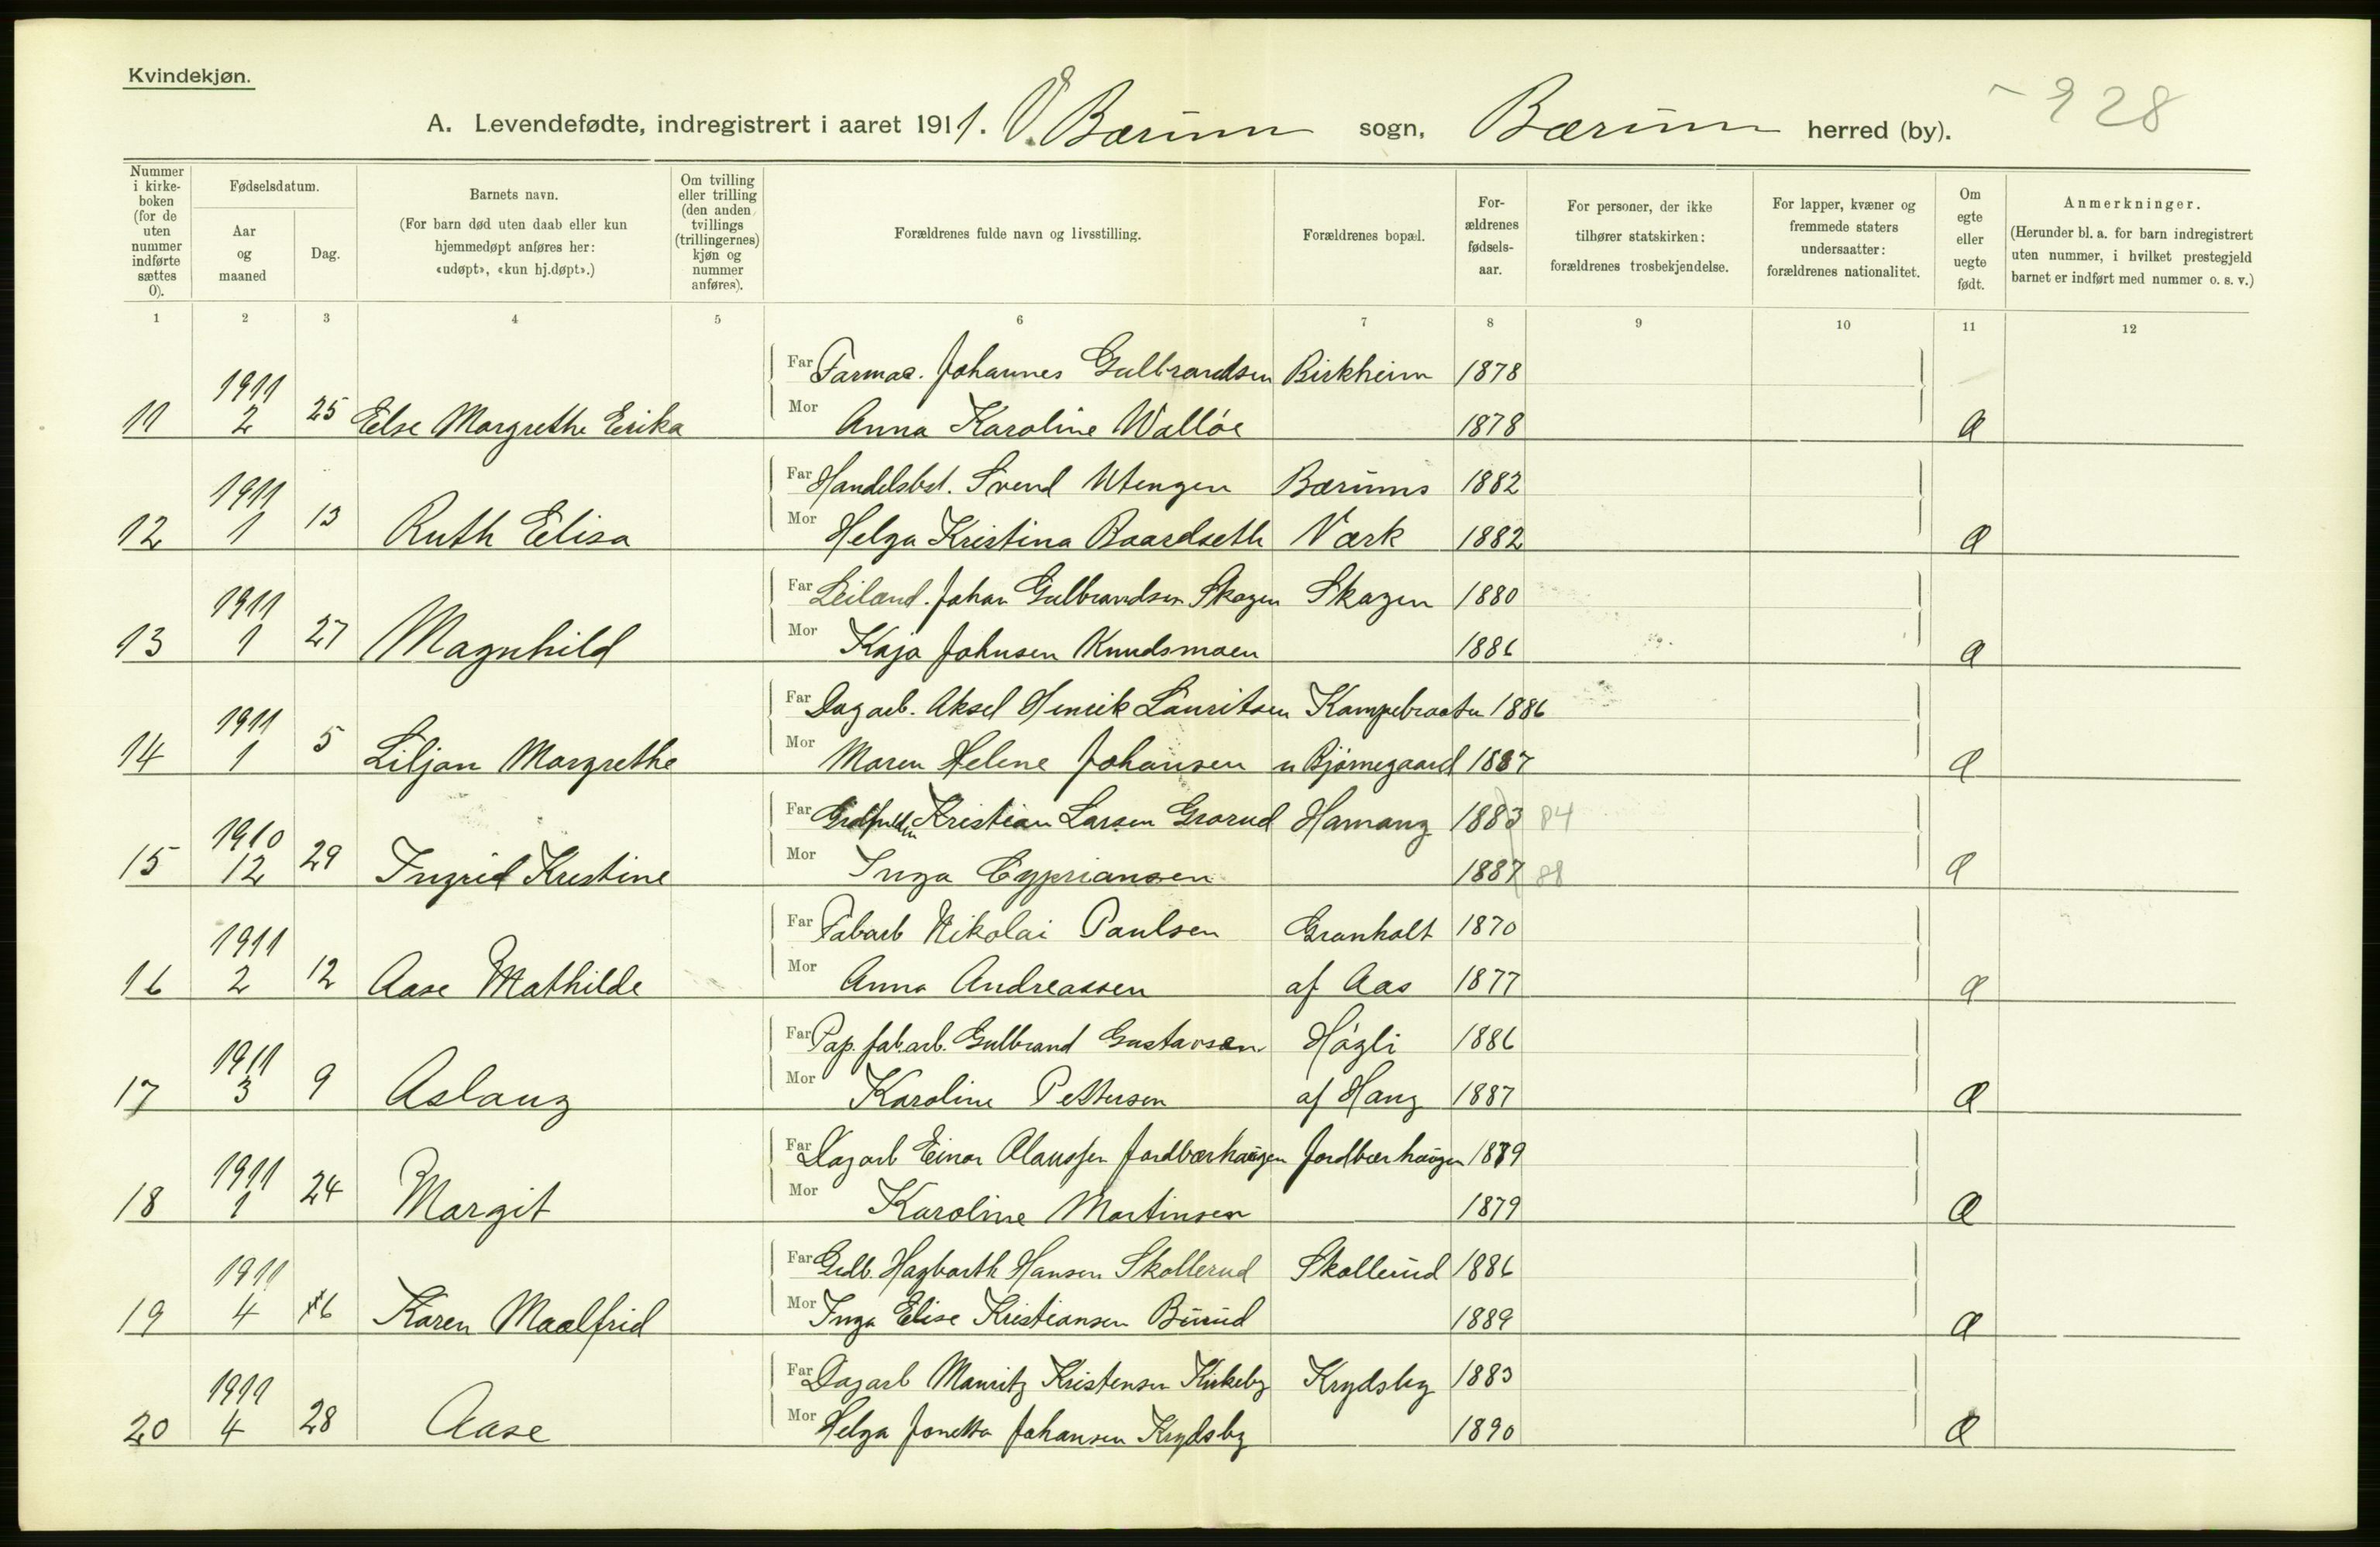 Kvindekjøn.
A. Levendefødte, indregistrert i aaret 1911. V. Bærum sogn, Bærum herred (by). 928
Nummer i kirke-boken (for de uten nummer indførte sættes 0).
Fødselsdatum.
Aar og maaned
Dag.
Barnets navn.
(For barn død uten daab eller kun hjemmedøpt anføres her: «udøpt», «kun hj.døpt».)
Om tvilling eller trilling (den anden tvillings (trillingernes) kjøn og nummer anføres).
Forældrenes fulde navn og livsstilling.
Forældrenes bopæl.
For-ældrenes fødsels-aar.
For personer, der ikke tilhører statskirken: forældrenes trosbekjendelse.
For lapper, kvæner og fremmede staters undersaatter: forældrenes nationalitet.
Om egte eller uegte født.
Anmerkninger.
(Herunder bl. a. for barn indregistrert uten nummer, i hvilket prestegjeld barnet er indført med nummer o. s. v.)
1 2 3 4 5 6 7 8 9 10 11 12
Far Farmac. Johannes Gulbrandsen Birkheim 1878
11 1911 2 25 Else Margrethe Erika Mor Anna Karoline Walløe 1878 a
Far Handelsbst. Svend Utengen Bærums 1882
12 1911 1 13 Ruth Elisa Mor Helga Kristina Baardseth Værk 1882 a
Far Leiland. Johan Gulbrandsen Skogen Skogen 1880
13 1911 1 27 Magnhild Mor Kaja Johnsen Knudsmoen 1886 a
Far Dagarb. Aksel Henrik Lauritsen Kampebraaten 1886
14 1911 1 5 Liljan Margrethe Mor Maren Helene Johansen u Bjørnegaard 1887 a
Far Kristian Larsen Grorud Hamang 1883 84
15 1910 12 29 Ingrid Kristine Mor Inga Cypriansen 1887 88 a
Far Fabarb Nikolai Paulsen Granholt 1870
16 1911 2 12 Aase Mathilde Mor Anna Andreassen af Aas 1877 a
Far Pap. fab.arb. Gulbrand Gustavsen Høgli 1886
17 1911 3 9 Aslaug Mor Karoline Pettersen af Haug 1887 a
Far Dagarb Einar Olaussen Jordbærhaugen Jordbærhaugen 1879
18 1911 1 24 Margit Mor Karoline Martinsen 1879 a
Far Grdb. Hagbarth Hansen Skollerud Skollerud 1886
19 1911 4 6 Karen Maalfrid Mor Inga Elise Kristiansen Burud 1889 a
Far Dagarb Mauritz Kristensen Kirkeby Krydsby 1883
20 1911 4 28 Aase Mor Helga Jonetta Johansen Krydsby 1890 a